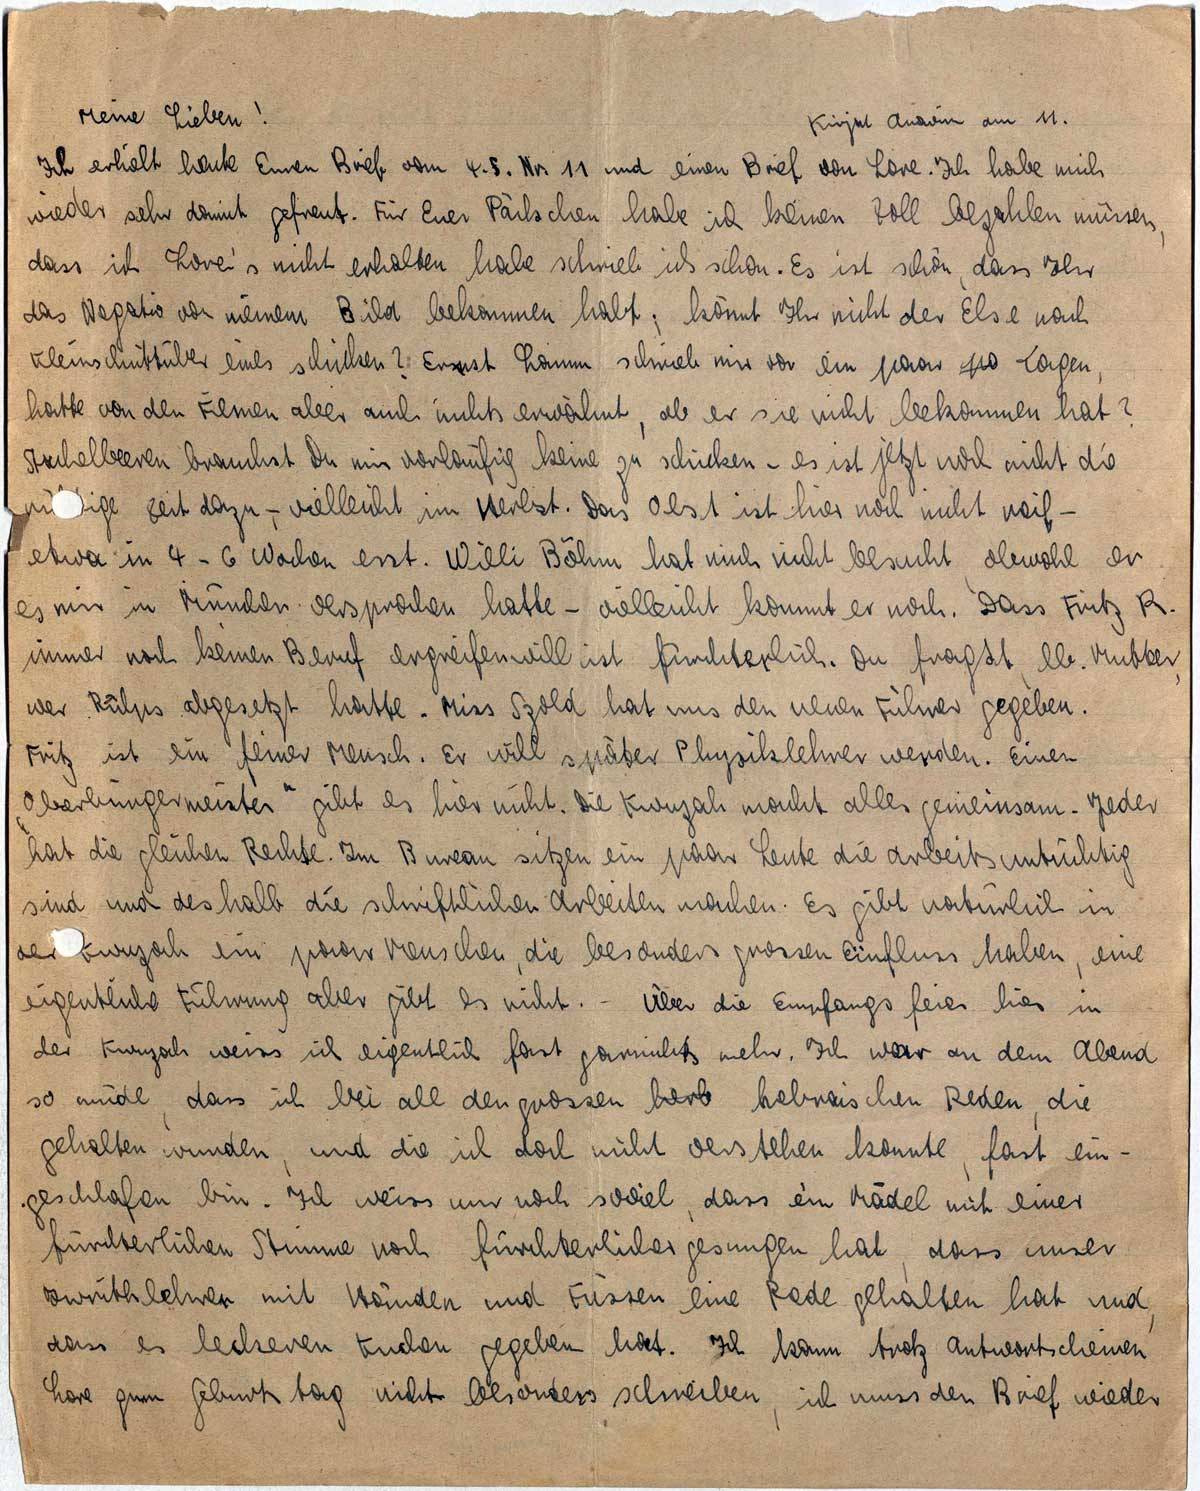 Meine Lieben!
Kirjat Anavim am 11.
Ich erhielt heute Euren Brief vom 4.5. Nr 11 und einen Brief von Lore. Ich habe mich
wieder sehr damit gefreut. Für Euer Päckchen habe ich keinen Zoll bezahlen müssen,
dass ich Lore's nicht erhalten habe schrieb ich schon. Es ist schön, dass Ihr
das Negativ von meinem Bild bekommen habt; könnt Ihr nicht der Else nach
eines schicken? Ernst Lamm schrieb mir vor ein paar Tagen,
hatte von den Filmen aber auch nichts erwähnt, ob er sie nicht bekommen hat?
Stachelbeeren brauchst Du mir vorläufig keine zu schicken – es ist jetzt noch nicht die
richtige Zeit dazu –, vielleicht im Herbst. Das Obst ist hier noch nicht reif –
etwa in 4 – 6 Wochen erst. Willi Böhm hat mich nicht besucht, obwohl er
es mir in München versprochen hatte – vielleicht kommt er noch. Dass Fritz R.
immer noch keinen Beruf ergreifen will ist fürchterlich. Du fragst, lb. Mutter,
wer abgesetzt hatte. Miss Szold hat uns den neuen Führer gegeben.
Fritz ist ein feiner Mensch. Er will später Physiklehrer werden. Einen
„Oberbürgermeister" gibt es hier nicht. Die Kwuzah macht alles gemeinsam. Jeder
hat die gleichen Rechte. Im Bureau sitzen ein paar Leute die arbeitsuntüchtig
sind und deshalb die schriftlichen Arbeiten machen. Es gibt natürlich in
der Kwuzah ein paar Menschen, die besonders grossen Einfluss haben, eine
eigentliche Führung aber gibt es nicht. – Über die Empfangsfeier hier in
der Kwuzah weiss ich eigentlich fast garnichts mehr. Ich war an dem Abend
so müde, dass ich bei all den grossen hebräischen Reden, die
gehalten wurden, und die ich doch nicht verstehen konnte, fast ein-
geschlafen bin. Ich weiss nur noch soviel, dass ein Mädel mit einer
fürchterlichen Stimme noch fürchterlicher gesungen hat, dass unser
Iwrithlehrer mit Händen und Füssen eine Rede gehalten hat und,
dass es leckeren Kuchen gegeben hat. Ich kann trotz Antwortscheinen
Lore zum Geburtstag nicht besonders schreiben, ich muss den Brief wieder